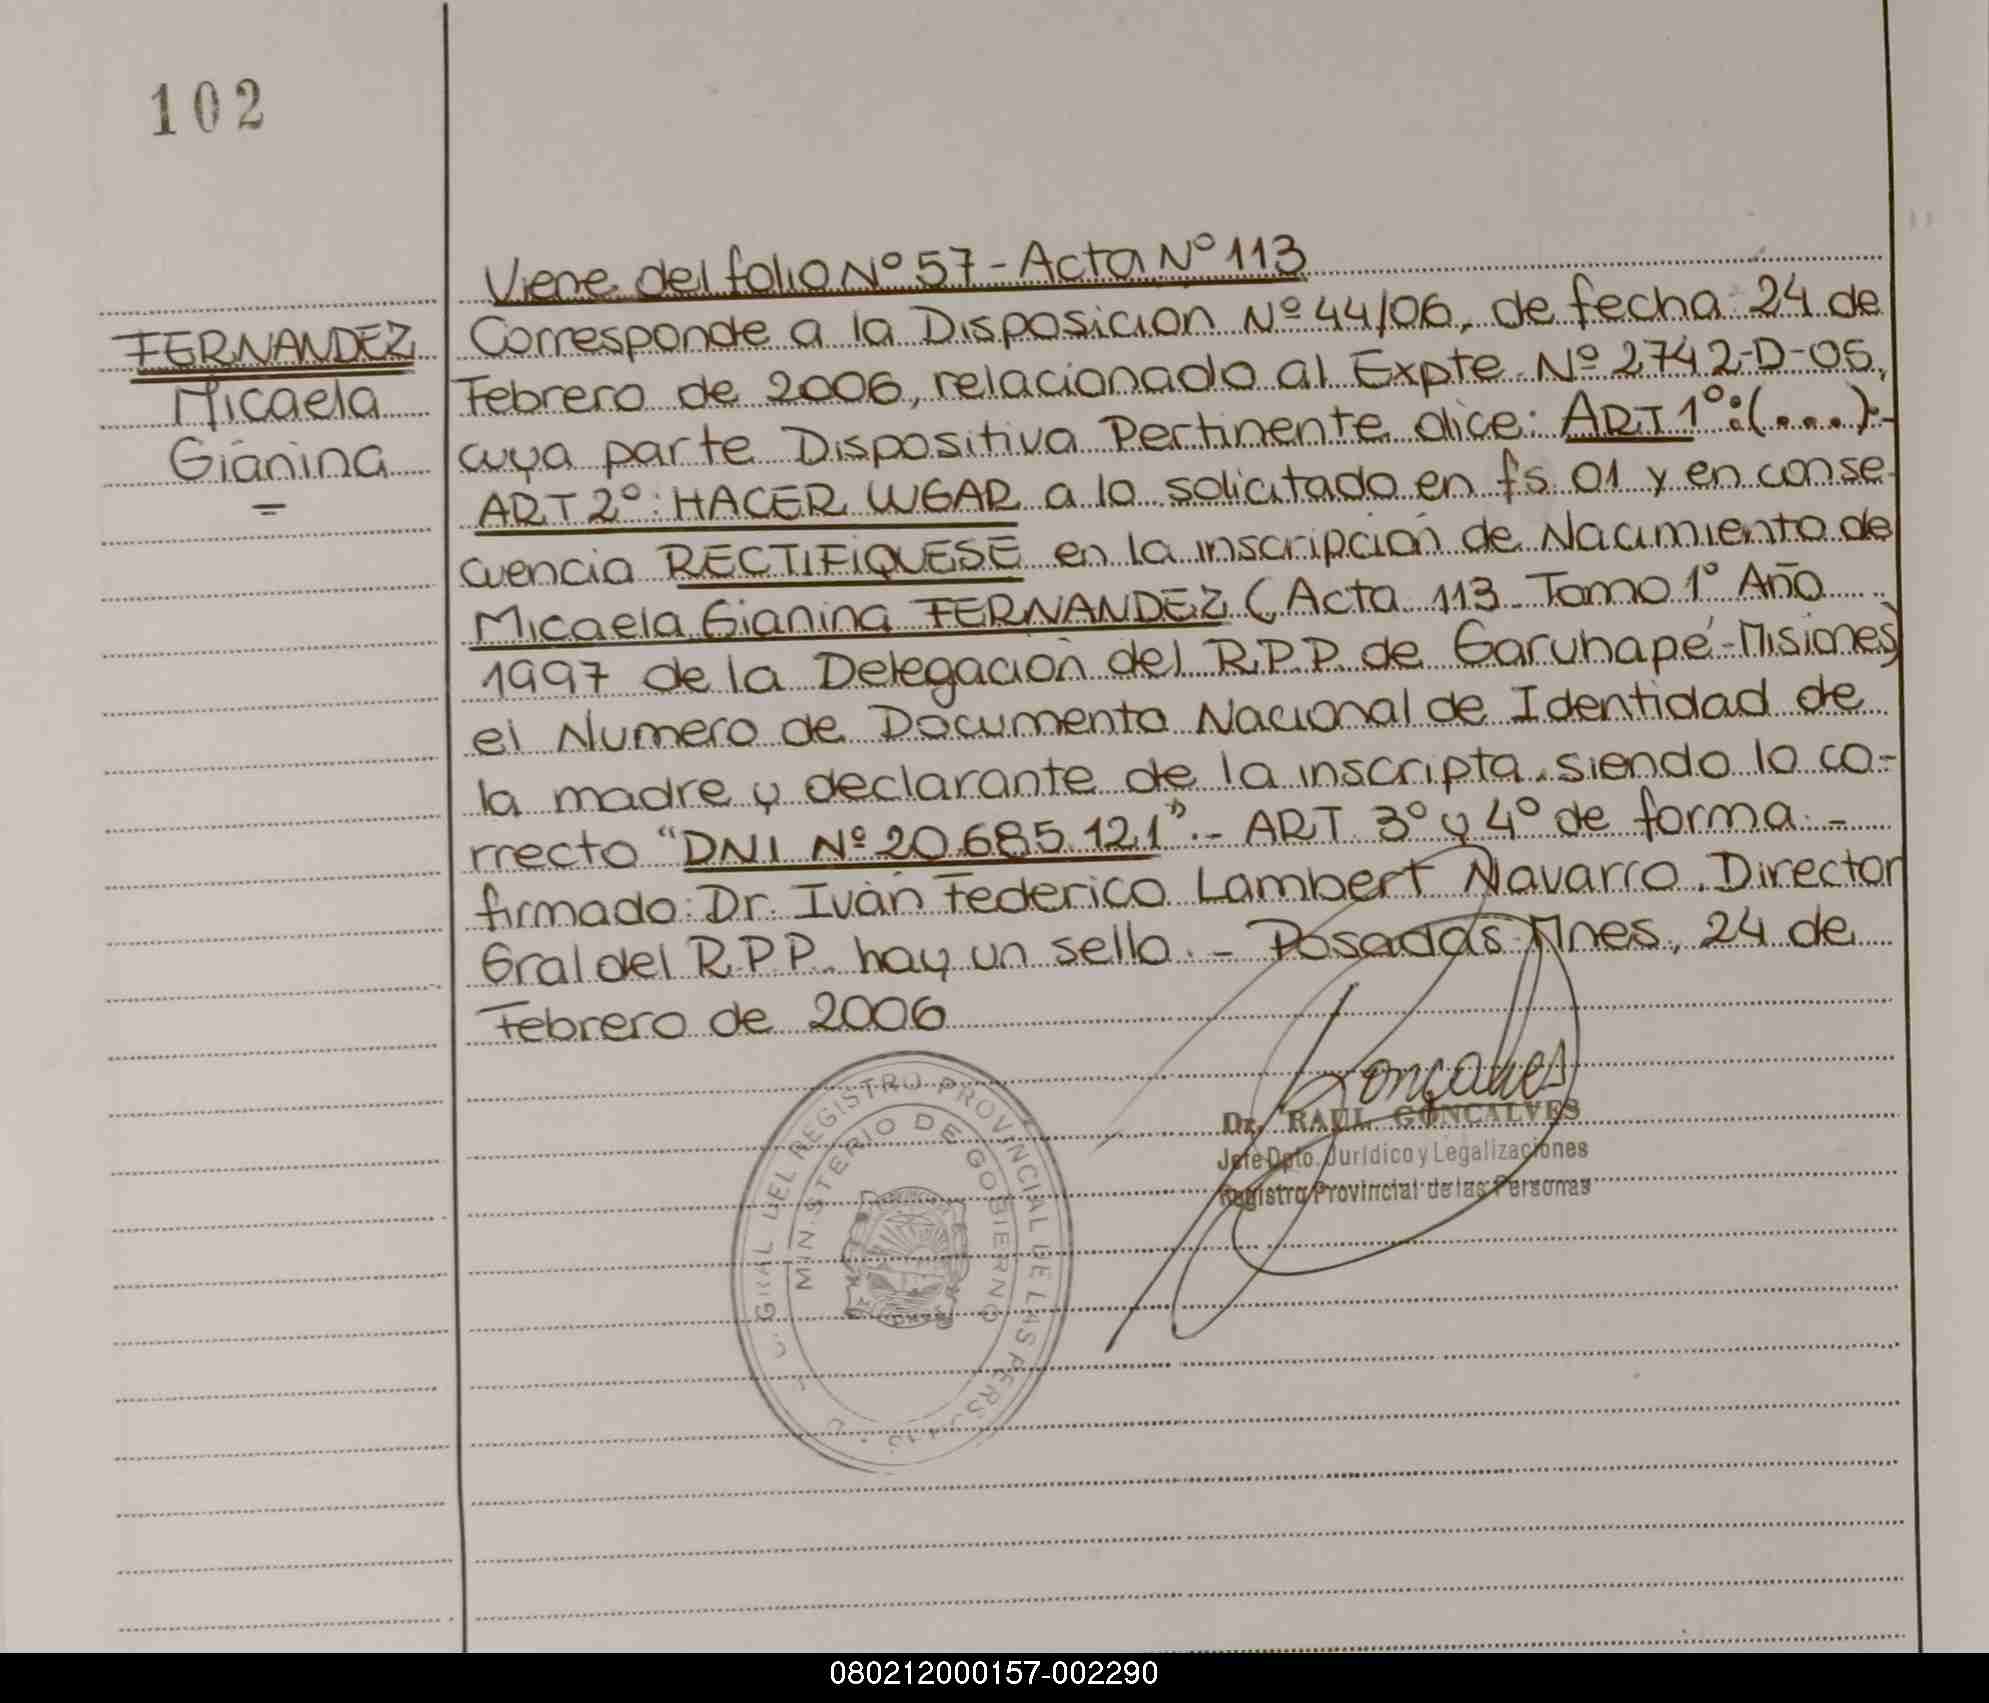 102
FERNANDEZ
Micaela
Gianina
Viene del folio Nº 57 - Acta Nº 113
Corresponde a la Disposición Nº 44/06, de fecha 24 de
Febrero de 2006, relacionado al Expte Nº 2742-D-05,
cuya parte Dispositiva Pertinente dice: ART 1º:(....).-
ART 2º: HACER LUGAR a lo solicitado en fs 01 y en conse-
cuencia RECTIFIQUESE en la inscripción de Nacimiento de
Micaela Gianina FERNANDEZ (Acta 113 Tomo 1º Año
1997 de la Delegación del R.P.P. de Garuhapé-Misiones)
el Numero de Documento Nacional de Identidad de
la madre y declarante de la inscripta, siendo lo co-
rrecto "DNI Nº 20.685.121".- ART 3º y 4º de forma.-
firmado: Dr. Iván Federico Lambert Navarro. Director
Gral del R.P.P. hay un sello.- Posadas Mnes, 24 de
Febrero de 2006
Gonçalves
Dr. RAUL GONCALVES
Jefe Dpto. Jurídico y Legalizaciones
Registro Provincial de las Personas
GRAL DEL REGISTRO PROVINCIAL DE LAS PERSONAS
MINISTERIO DE GOBIERNO
080212000157-002290